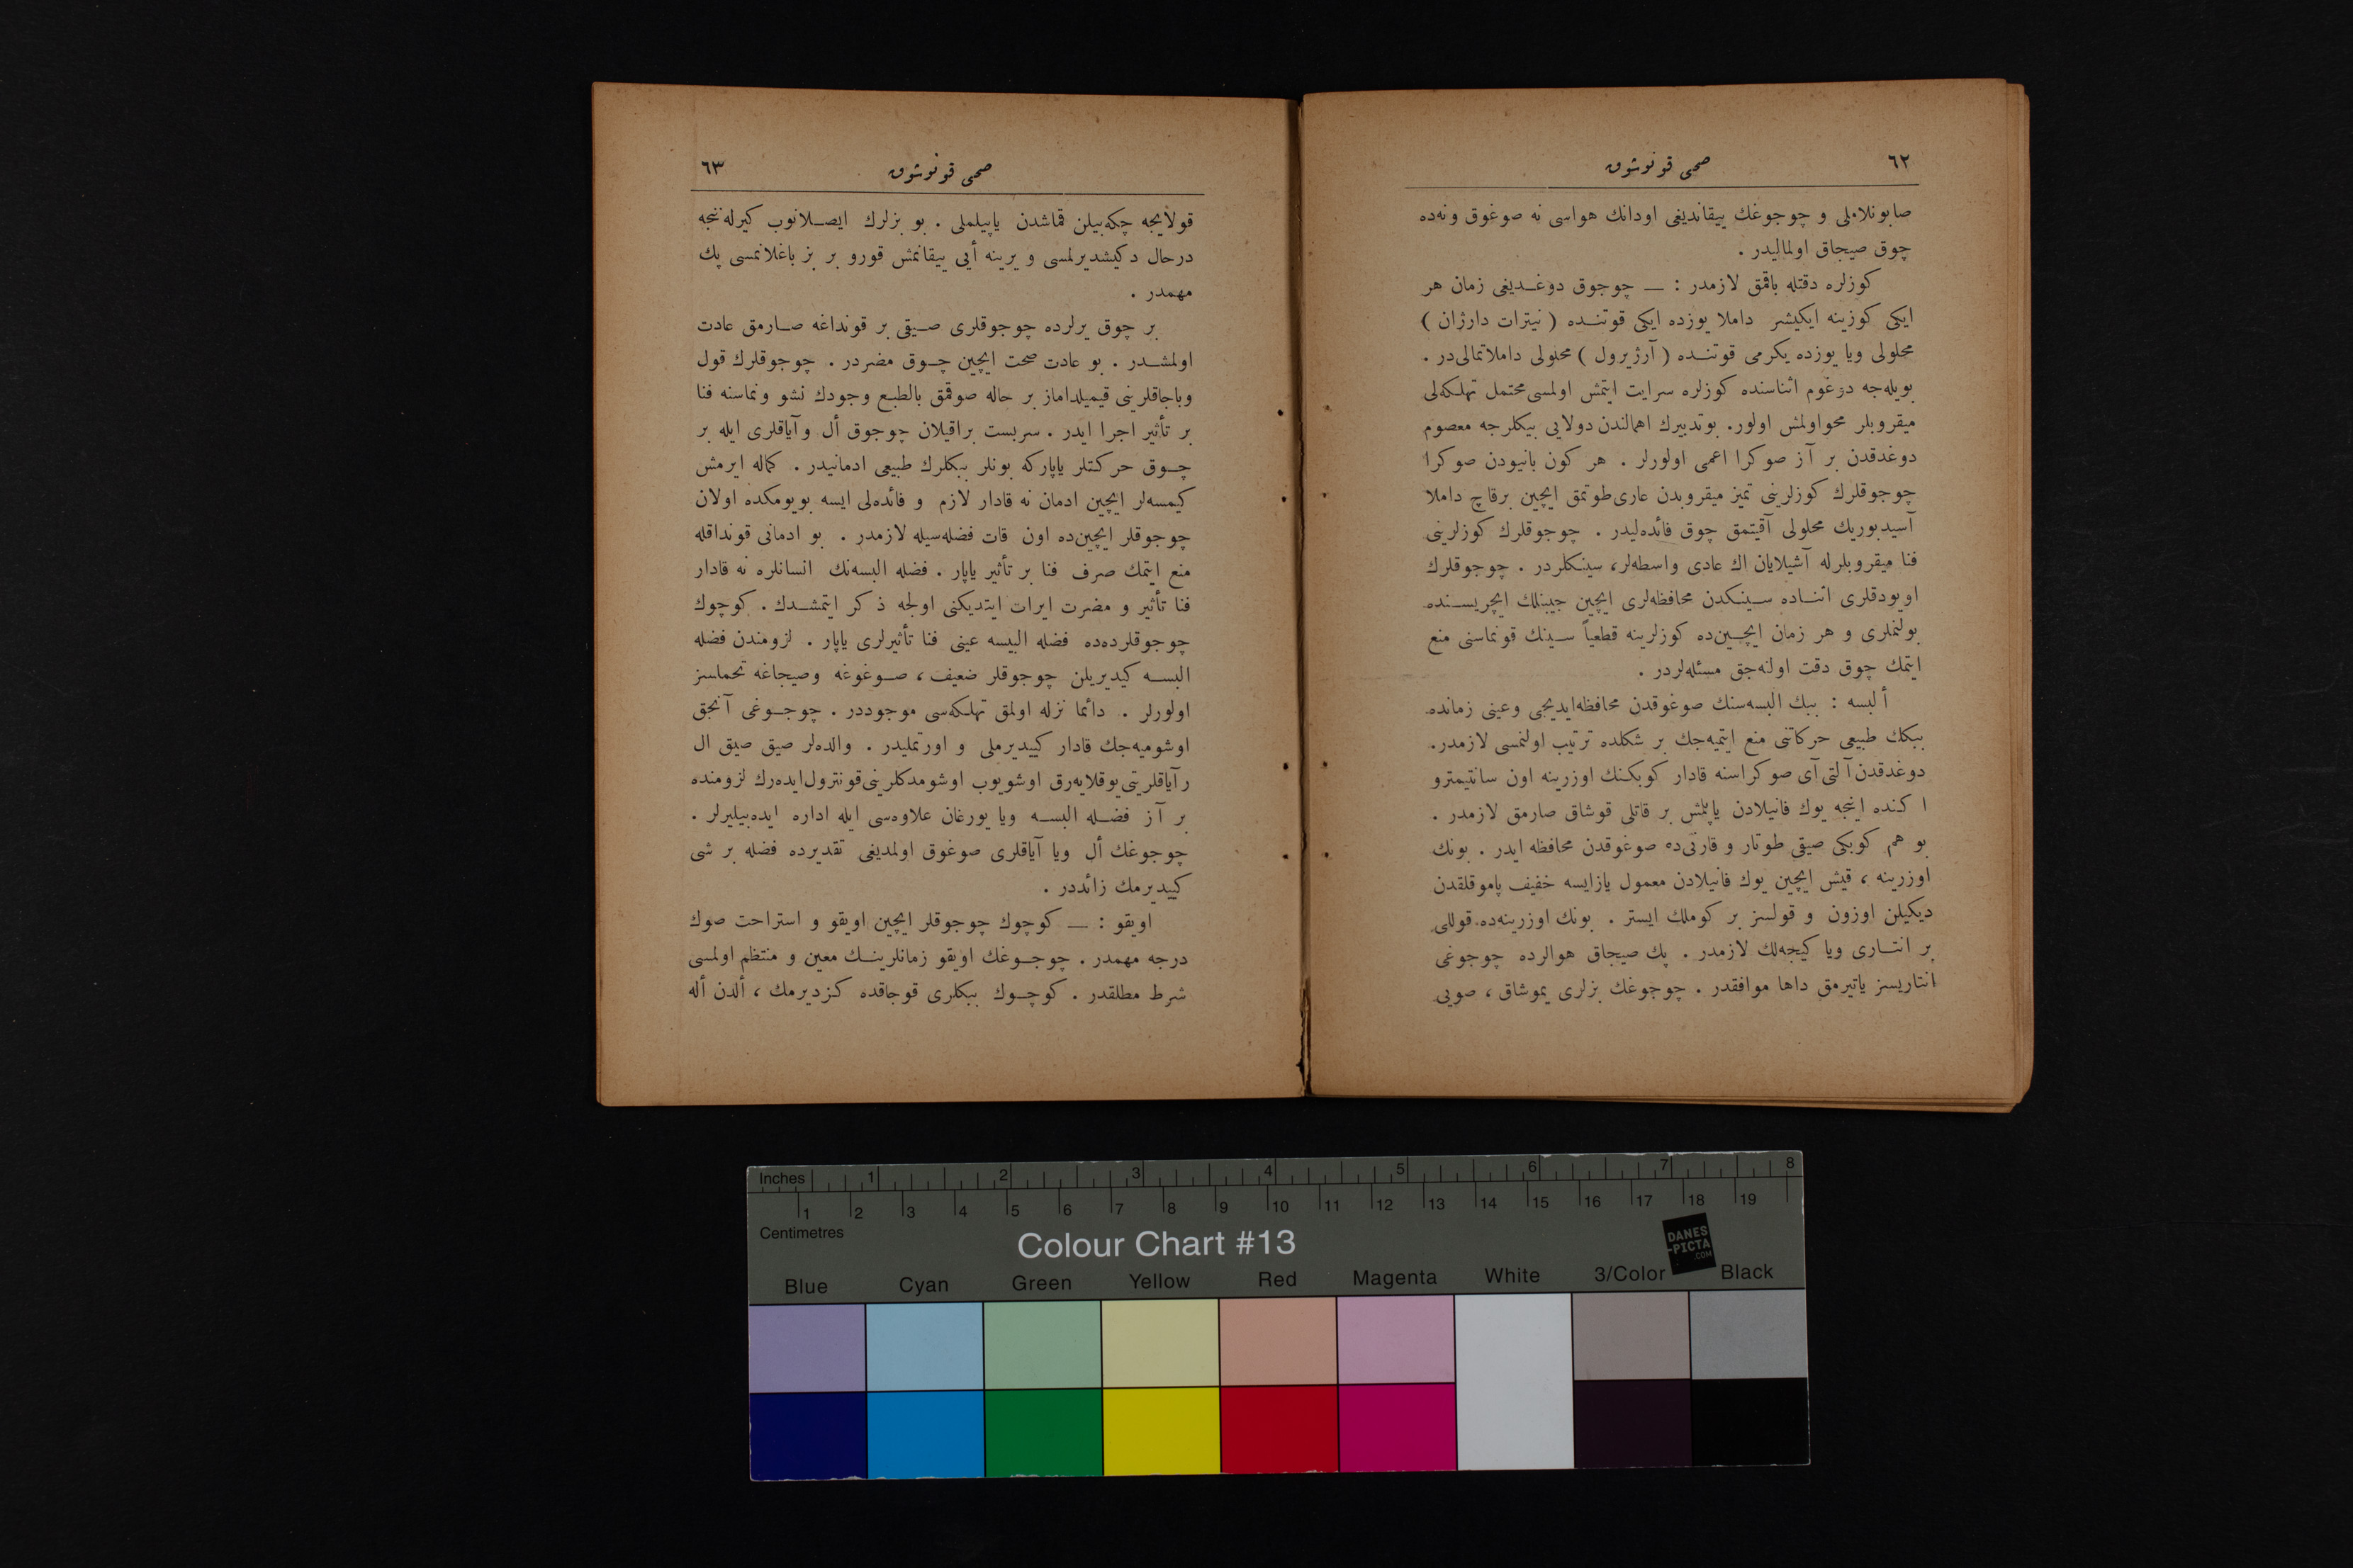 ٦٢
صحی قونوشوق
صابونلاملی و چوجوغك ییقاندیغی اودانك هواسی نه صوغوق ونه‌ده
چوق صیجاق اولمالیدر .
كوزلره دقتله باقمق لازمدر : — چوجوق دوغـدیغی زمان هر
ایكی كوزینه ایكیشر داملا یوزده ایكی قوتنـده ( نیترات دارژان )
محلولی ویا یوزده یكرمی قوتنـده ( آرژیرول ) محلولی داملاتمالی‌در .
بویله‌جه دوغوم اثناسنده كوزلره سرایت ایتمش اولمسی محتمل تهلكه‌لی
میقروبلر محواولمش اولور. بوتدبیرك اهمالندن دولایی بیكلرجه معصوم
دوغدقدن بر آز صوكرا اعمی اولورلر . هر كون بانیودن صوكرا
چوجوقلرك كوزلرینی تمیز میقروبدن عاری‌طوتمق ایچین برقاچ داملا
آسیدبوریك محلولی آقیتمق چوق فائده‌لیدر . چوجوقلرك كوزلرینی
فنا میقروبلرله آشیلایان اك عادی واسطه‌لر، سینكلردر . چوجوقلرك
اویودقلری اثنـاده سـینكدن محافظه‌لری ایچین جیبنلك ایچریسـنده
بولنملری و هر زمان ایچـین‌ده كوزلرینه قطعیاً سـینك قونماسنی منع
ایتمك چوق دقت اولنه‌جق مسئله‌لردر .
ألبسه : ببك البسه‌سنك صوغوقدن محافظه‌ایدیجی وعینی زمانده
ببكك طبیعی حركاتنی منع ایتمیه‌جك بر شكلده ترتیب اولنمسی لازمدر.
دوغدقدن آلتی آی صوكراسنه قادار كوبكنك اوزرینه اون سانتیمترو
ا كنده اینجه یوك فانیلادن یاپلمش بر قاتلی قوشاق صارمق لازمدر .
بو هم كوبكی صیقی طوتار و قارنی‌ده صوغوقدن محافظه ایدر . بونك
اوزرینه ، قیش ایچین یوك فانیلادن معمول یازایسه خفیف پاموقلقدن
دیكیلن اوزون و قولسز بر كوملك ایستر . بونك اوزرینه‌ده قوللی
بر انتـاری ویا كیجه‌لك لازمدر . پك صیجاق هوالرده چوجوغی
انتاریسز یاتیرمق داها موافقدر . چوجوغك بزلری یموشاق ، صویی
صحی قونوشوق
٦٣
قولایجه چكه‌بیلن قماشدن یاپیلملی . بو بزلرك ایصـلانوب كیرله‌ننجه
درحال دكیشدیرلمسی و یرینه أیی ییقانمش قورو بر بز باغلانمسی پك
مهمدر .
بر چوق یرلرده چوجوقلری صـیقی بر قونداغه صـارمق عادت
اولمشـدر . بو عادت صحت ایچین چـوق مضردر . چوجوقلرك قول
وباجاقلرینی قیمیلداماز بر حاله صوقمق بالطبع وجودك نشو ونماسنه فنا
بر تأثیر اجرا ایدر . سربست براقیلان چوجوق أل وآیاقلری ایله بر
چـوق حركتلر یاپاركه بونلر ببكلرك طبیعی ادمانیدر . كماله ایرمش
كیمسه‌لر ایچین ادمان نه قادار لازم و فائده‌لی ایسه بویومكده اولان
چوجوقلر ایچین‌ده اون قات فضله‌سیله لازمدر . بو ادمانی قونداقله
منع ایتمك صرف فنا بر تأثیر یاپار . فضله البسه‌نك انسانلره نه قادار
فنا تأثیر و مضرت ایرات ایتدیكنی اولجه ذكر ایتمشـدك . كوچوك
چوجوقلرده‌ده فضله البیسه عینی فنا تأثیرلری یاپار . لزومندن فضله
البسـه كیدیریلن چوجوقلر ضعیف ، صـوغوغه وصیجاغه تحماسز
اولورلر . دائما نزله اولمق تهلكه‌سی موجوددر . چوجـوغی آنجق
اوشومیه‌جك قادار كییدیرملی و اورتملیدر . والده‌لر صیق صیق ال
رآیاقلرینی‌یوقلایه‌رق اوشویوب اوشومدكلرینی‌قونترول‌ایده‌رك لزومنده
بر آز فضـله البسـه ویا یورغان علاوه‌سی ایله اداره ایده‌بیلیرلر .
چوجوغك أل ویا آیاقلری صوغوق اولمدیغی تقدیرده فضله بر شی
كییدیرمك زائددر .
اویقو : — كوچوك چوجوقلر ایچین اویقو و استراحت صوك
درجه مهمدر . چوجـوغك اویقو زمانلرینـك معین و منتظم اولمسی
شرط مطلقدر . كوچـوك ببكلری قوجاقده كزدیرمك ، ألدن أله
Inches 1 2 3 4 5 6 7 8
1 2 3 4 5 6 7 8 9 10 11 12 13 14 15 16 17 18 19
Centimetres
Colour Chart #13
DANES
-PICTA
.COM
Blue Cyan Green Yellow Red Magenta White 3/Color Black